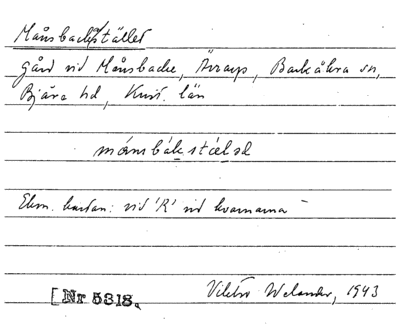 Månsbackstället
Gård vid Månsbacke, Ärrarp, Barkåkra sn,
Bjäre hd, Krist. län
månsbákstälәt
Ekon. kartan: vid 'R' vid kvarnarna
[Nr 5318.
Viktor Welander, 1943